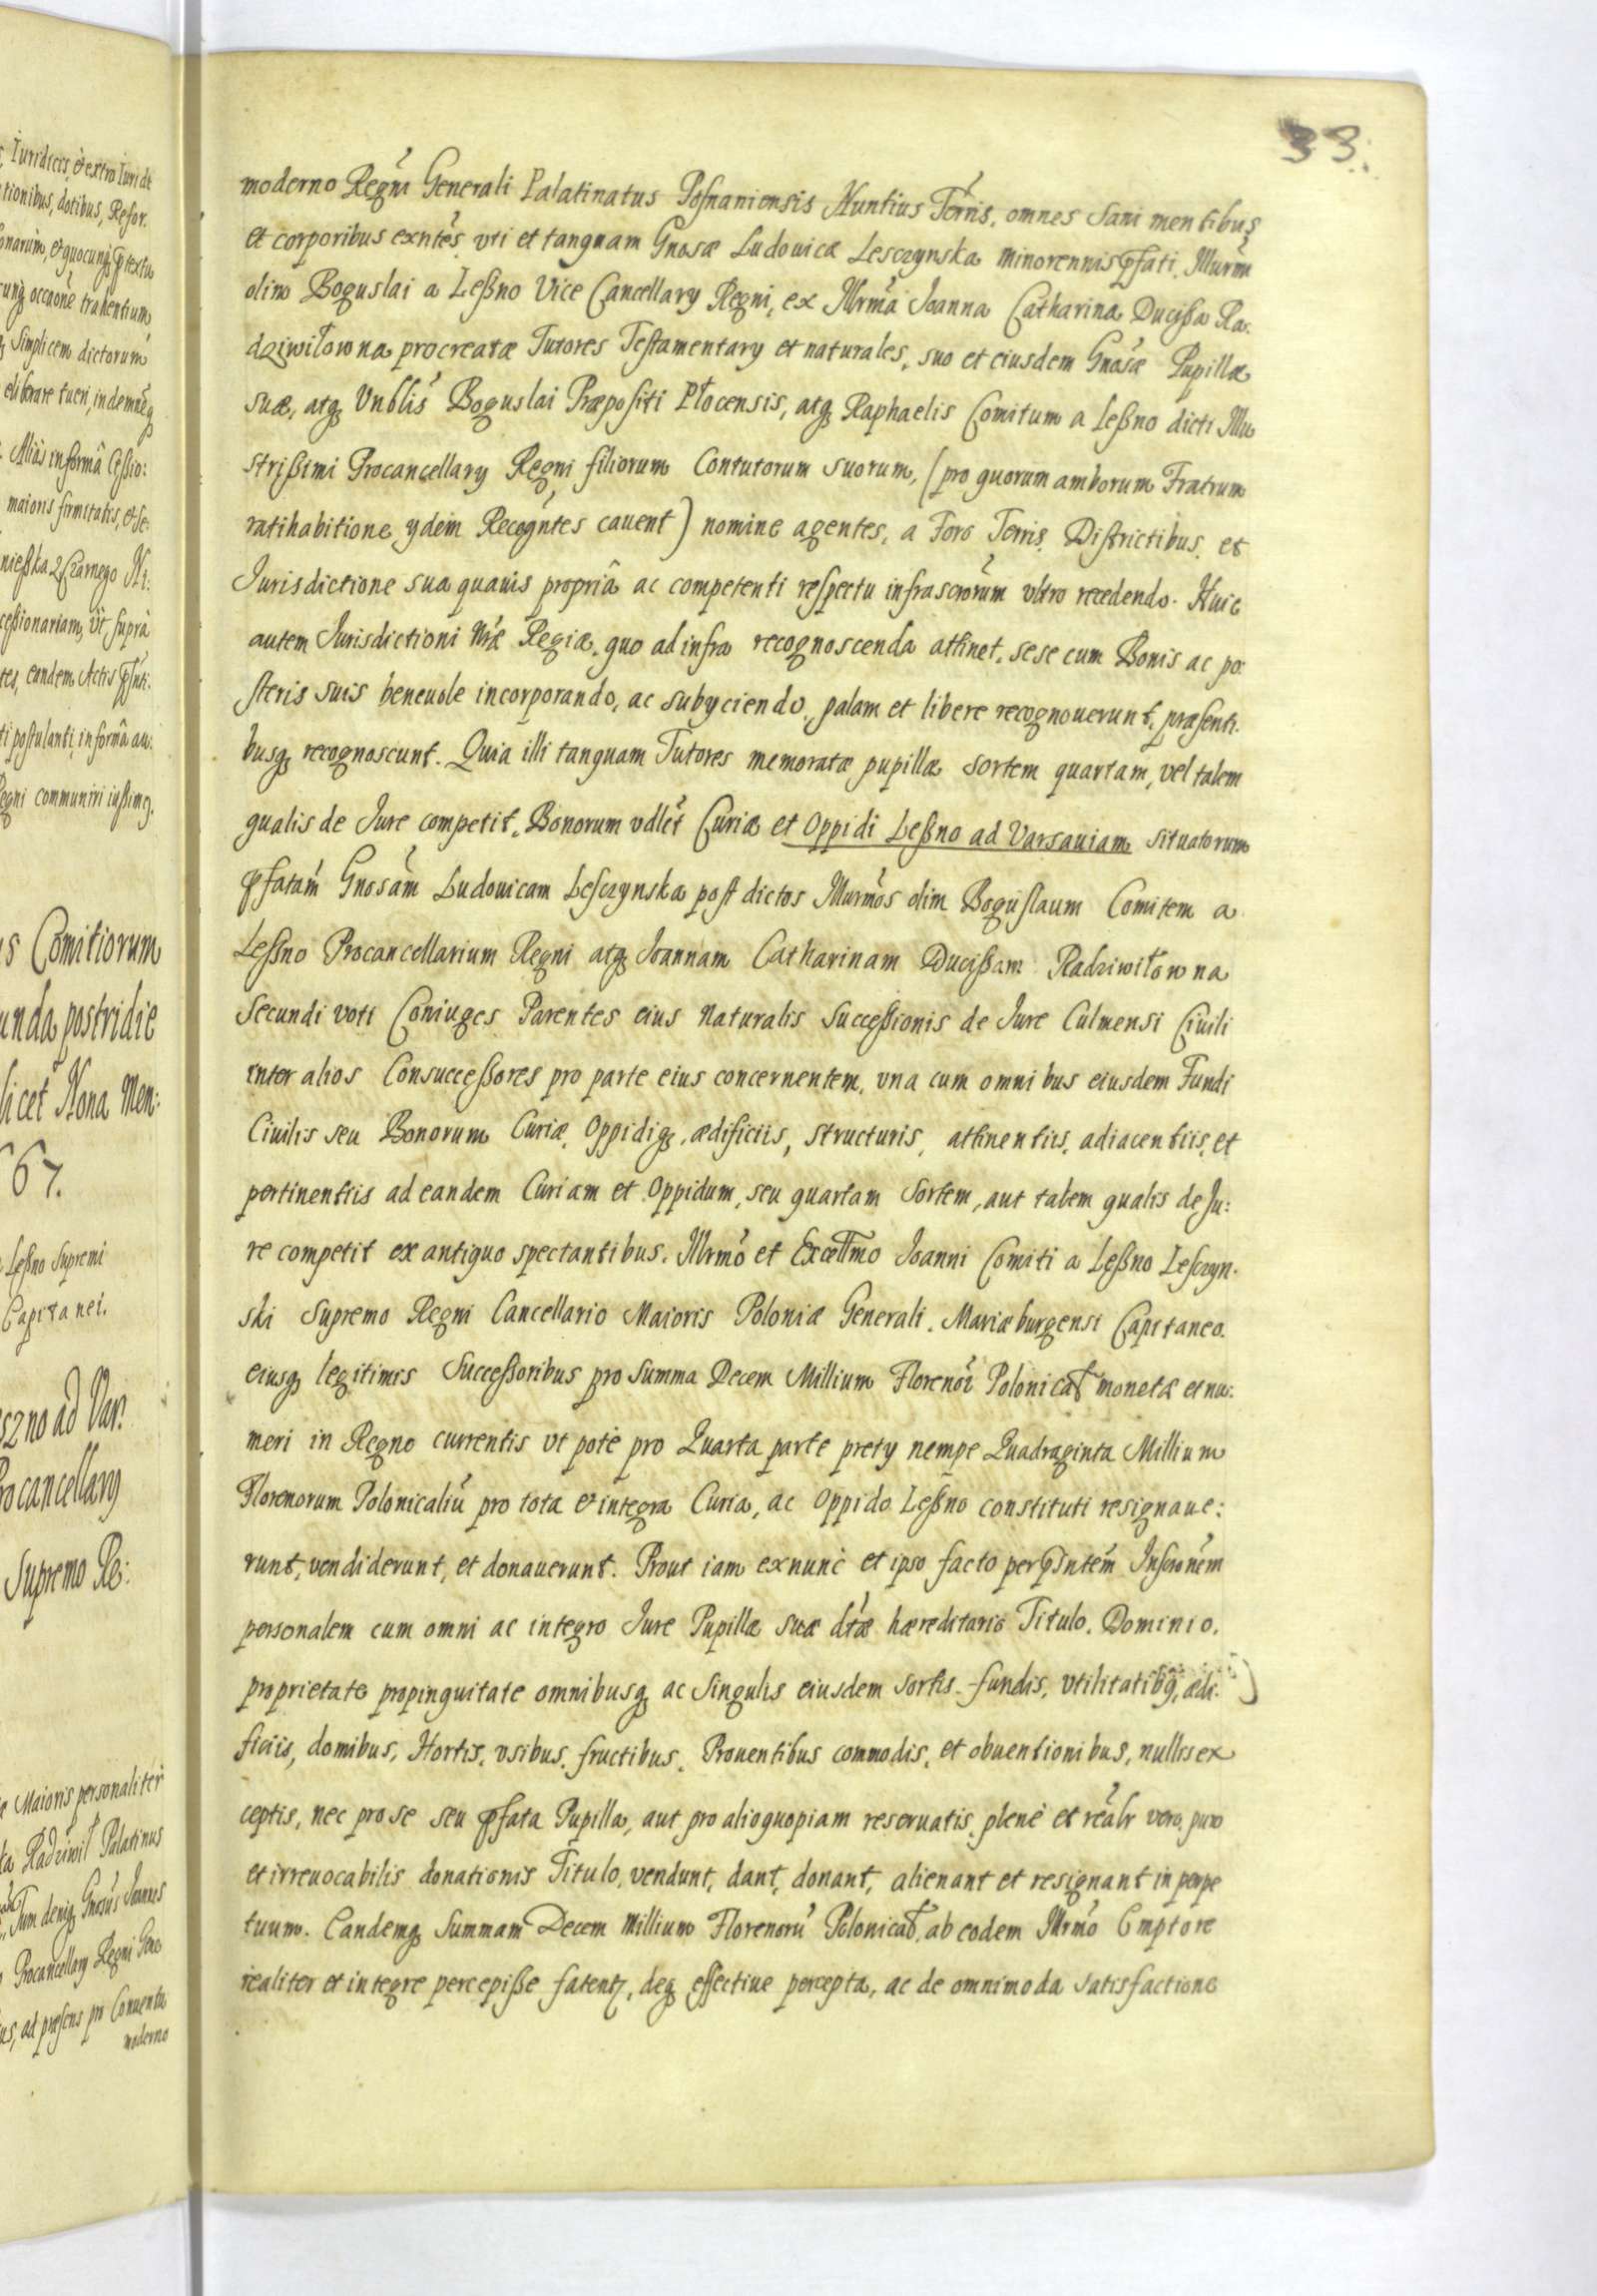 s, Iuridicis, et extra Iuridi
tionibus, dotibus, Refor.
onarum, et quocunq; prtextu
cunq; occaone trahentium
Simplicem dictorum
eliberare tueri, indemneq;
Alias in forma Cessio:
maioris firmitatis, et Se:
nießka Czarnego Ni:
ceßionariam, vt supra
tes, eandem Actis pnti.
ti postulanti, in forma au:
Regni communiri iußimq.
s Comitiorum
unda postridie
licet Nona Men:
67.
Leßno Supremi
Capitanei.
szno ad Var:
rocancellary
Supremo Re:
Maioris personaliter
ta Radziwił Palatinus
Tum deniq; Gnosus Joannes
Procancellary Regni Gene
us, ad præsens pr Conuentu
moderno
33.
moderno Regni Generali Palatinatus Posnaniensis Nuntius Terris. omnes sani mentibus
et corporibus exntes, vti et tanquam Gnosæ Ludouicæ Lesczynska minorennis pfati. Illurmi
olim Boguslai a Leßno Vice Cancellary Regni, ex Illrma Joanna Catharina Ducißa Ra.
dziwiłowna procreatæ Tutores Testamentary et naturales, suo et eiusdem Gnosæ Pupillæ
suæ, atq; Vnblis Boguslai Præpositi Płocensis, atq; Raphaelis Comitum a Leßno dicti Illu
strißimi Procancellary Regni filiorum Contutorum suorum, (pro quorum amborum Fratrum
ratihabitione ydem Recogntes cauent) nomine agentes, a Foro Terris. Districtibus, et
Jurisdictione sua quauis propriâ ac competenti respectu infrascrorum vltro recedendo. Huic
autem Jurisdictioni Nræ Regiæ, quo ad infra recognoscenda attinet, sese cum Bonis ac po:
steris suis beneuole incorporando, ac subyciendo, palam et libere recognouerunt, præsenti.
busq; recognoscunt. Quia illi tanquam Tutores memoratæ pupillæ sortem quartam, vel talem
qualis de Jure competit, Bonorum vdlet Curiæ et Oppidi Leßno ad Varsauiam situatorum
pfatam Gnosam Ludouicam Lesczynska post dictos Illurmos olim Boguslaum Comitem a
Leßno Procancellarium Regni atq; Joannam Catharinam Ducißam Radziwiłowna
Secundi voti Coniuges Parentes eius naturalis Succeßionis de Jure Culmensi Ciuili
inter alios Consucceßores pro parte eius concernentem, vna cum omnibus eiusdem Fundi
Ciuilis seu Bonorum Curiæ, Oppidiq;, ædificiis, structuris, attinentiis, adiacentiis, et
pertinentiis ad eandem Curiam et Oppidum, seu quartam Sortem, aut talem qualis de Ju:
re competit ex antiquo spectantibus. Illrmo et Excellmo Joanni Comiti a Leßno Lesczyn.
ski Supremo Regni Cancellario Maioris Poloniæ Generali. Mariæburgensi Capitaneo.
eiusq; legitimis Succeßoribus pro Summa Decem Millium Florenor Polonical monetæ et nu:
meri in Regno currentis vt pote pro Quarta parte prety nempe Quadraginta Millium
Florenorum Polonicaliu pro tota et integra Curia, ac Oppido Leßno constituti resignaue:
runt, vendiderunt, et donauerunt. Prout iam exnunc et ipso facto per pntem Inscronem
personalem cum omni ac integro Jure Pupillæ suæ dtæ hæreditario Titulo. Dominio.
proprietate propinquitate omnibusq; ac singulis eiusdem sortis fundis, vtilitatibq;, ædi.
ficiis, domibus, Hortis, vsibus, fructibus. Prouentibus commodis, et obuentionibus, nullis ex
ceptis, nec pro se seu pfata Pupilla, aut pro alioquopiam reseruatis, plenè et realr vero, puro
et irreuocabilis donationis Titulo, vendunt, dant, donant, alienant et resignant in perpe
tuum. Eandemq; Summam Decem Millium Florenoru Polonical, ab eodem Illrmo Emptore
realiter et integre percepiße fatent, deq; effectiue percepta, ac de omnimoda satisfactione